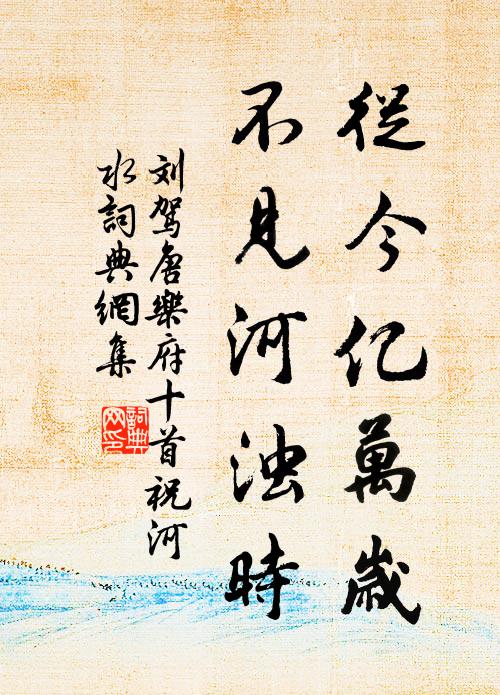 從今亿萬歲
不見河浊時
刘驾唐樂府十首祝河
水詞典網集
詞典
网印